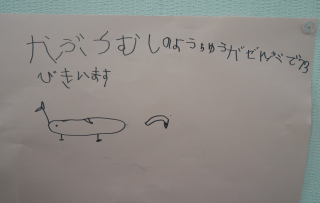 かぶちむしのようちゅうがぜんぶで73
ぴきいます